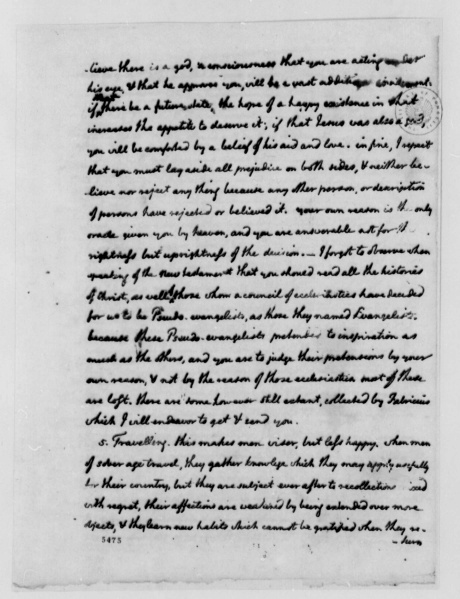 -lieve there is a god, a consciousness that you are acting under
his eye, & that he approves you, will be a vast additional incitement.
if that there be a future state, the hope of a happy existence in that
increases the appetite to deserve it; if that Jesus was also a god,
you will be comforted by a belief of his aid and love. in fine, I repeat
that you must lay aside all prejudice on both sides, & neither be-
lieve nor reject any thing because any other person, or description
of persons have rejected or believed it. your own reason is the only
oracle given you by heaven, and you are answerable not for the
rightness but uprightness of the decision. — I forgot to observe when
speaking of the New testament that you should read all the histories
of Christ, as well of those whom a council of ecclesiastics have decided
for us to be Pseudo-evangelists, as those they named Evangelists.
because these Pseudo-evangelists pretended to inspiration as
much as the others, and you are to judge their pretensions by your
own reason, & not by the reason of those ecclesiastics. most of these
are lost. there are some however still extant, collected by Fabricius
which I will endeavor to get & send you.
5. Travelling. this makes men wiser, but less happy. when men
of sober age travel, they gather knowlege which they may apply usefully
for their country, but they are subject ever after to recollections mixed
with regret, their affections are weakened by being extended over more
objects, & they learn new habits which cannot be gratified when they re-
-turn
5475